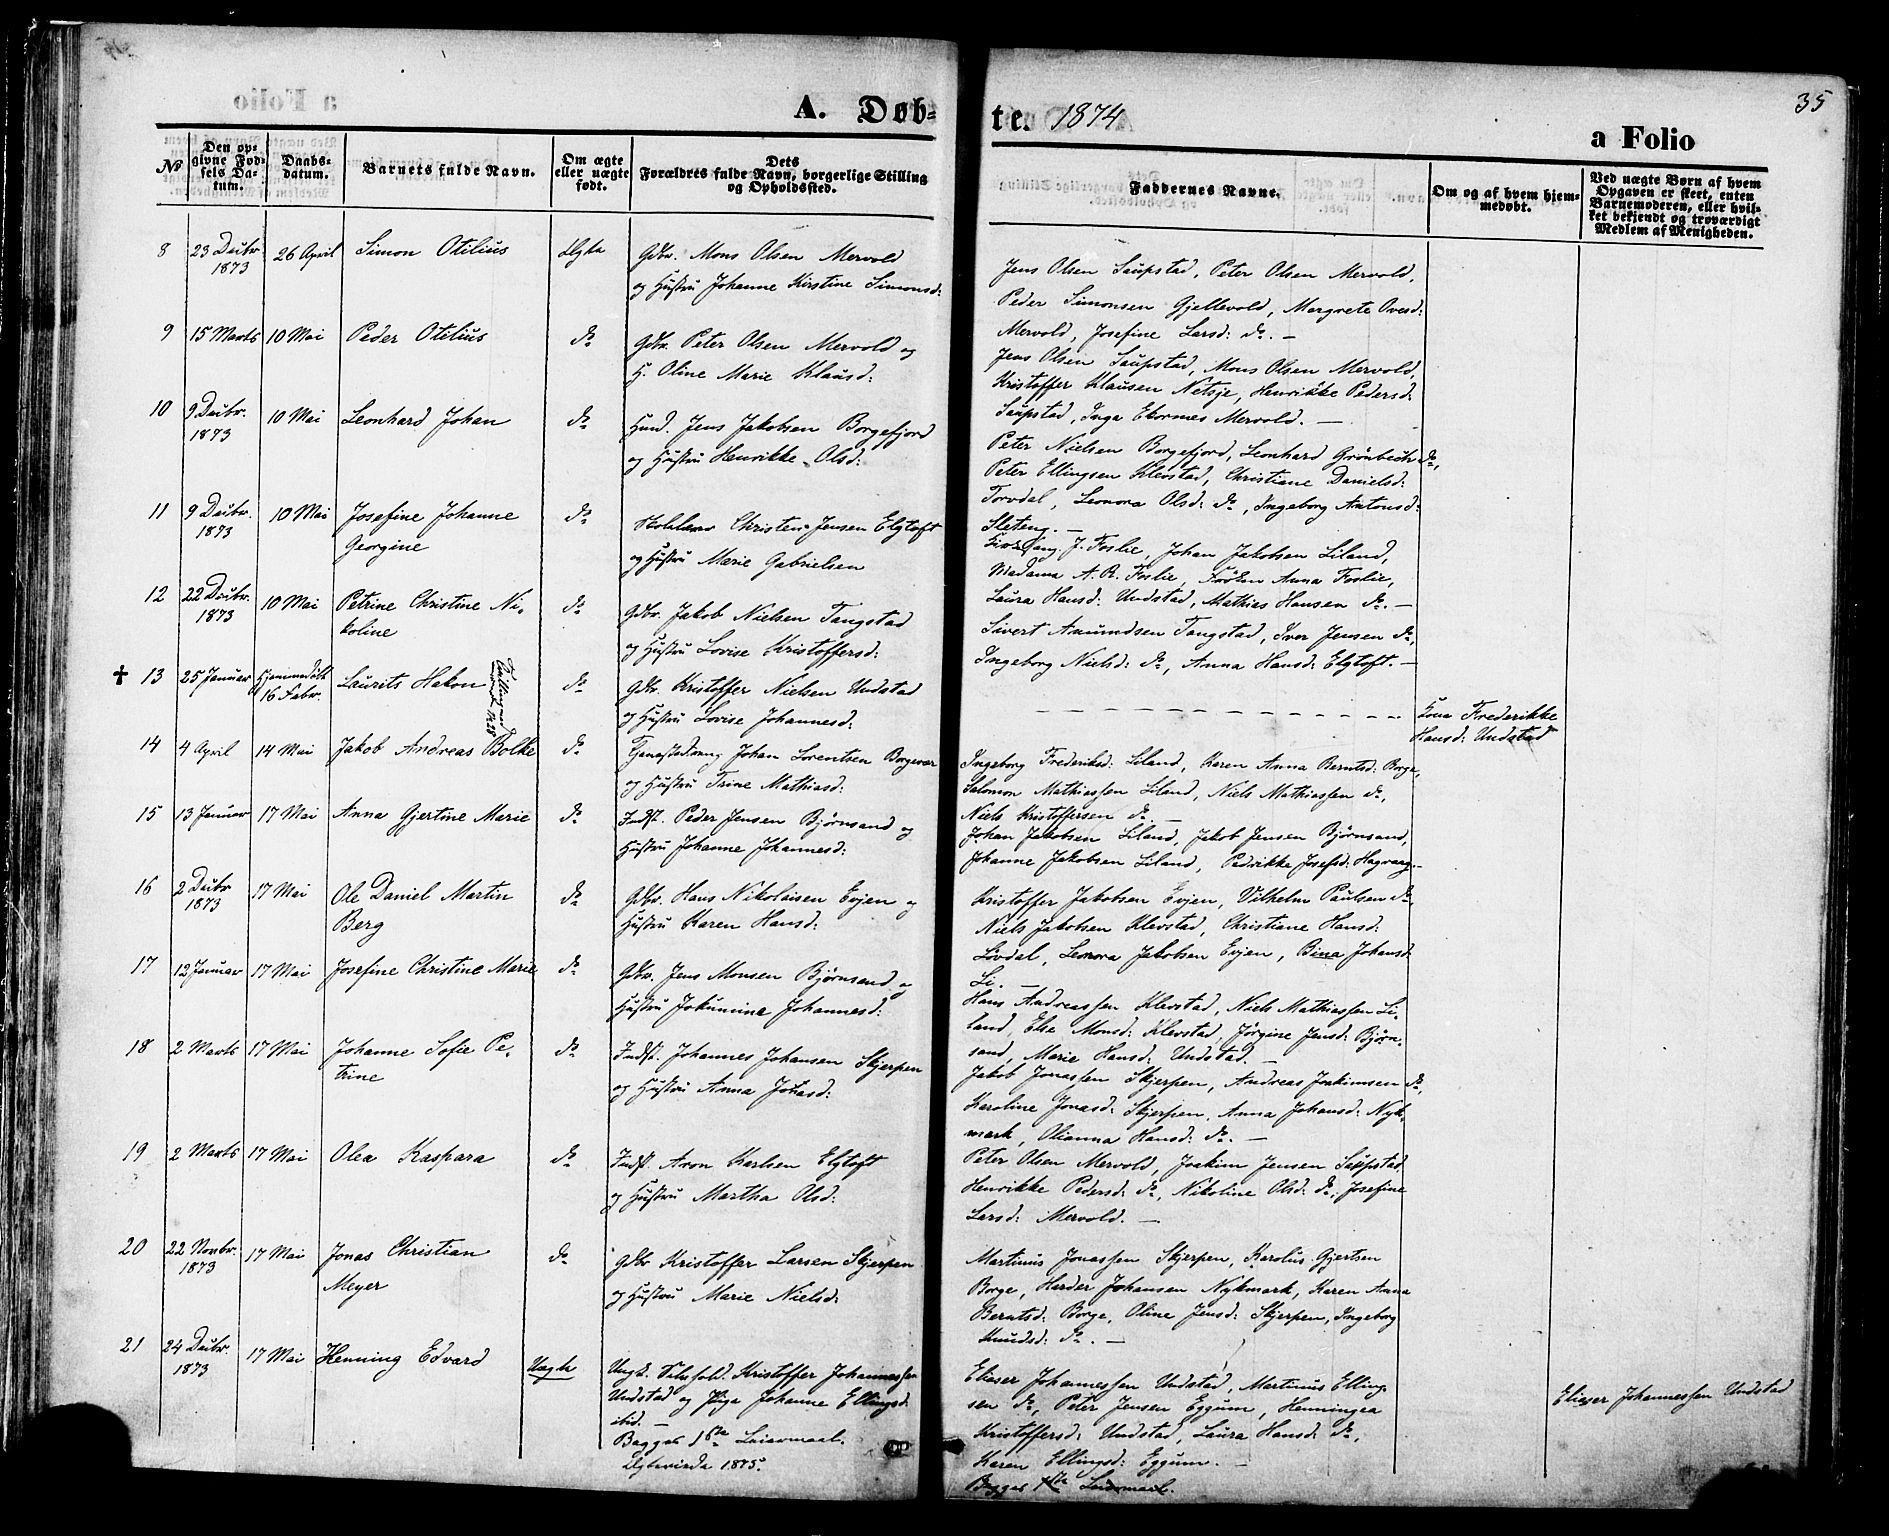 35
A. Døbte. 1874
a Folio
No
Den opgivne Fødsels Datum.
Daabsdatum.
Barnets fulde Navn.
Om ægte eller uægte født.
Dets Forældres fulde Navn, borgerlige Stilling og Opholdssted.
Faddernes Navne.
Om og af hvem hjemmedøbt.
Ved uægte Børn af hvem Opgaven er skeet, enten Barnemoderen, eller hvilket bekjendt og troværdigt Medlem af Menigheden.
8 23 Decbr. 1873 26 April Simon Otilius Ægte
Gdbr. Mons Olsen Mervold
og Hustru Johanne Kirstine Simonsd:
Jens Olsen Saupstad, Peter Olsen Mervold,
Peder Simonsen Gjellevold, Margrete Ovesd:
Mervold, Josefine Larsd: do. —
9 15 Marts 10 Mai Peder Otilius do
Gdbr. Peter Olsen Mervold og
H. Oline Marie Klausd:
Jens Olsen Saupstad, Mons Olsen Mervold,
Kristoffer Klausen Netsje, Henrikke Pedersd:
Saupstad, Inga Ekornes Mervold. —
10 9 Decbr. 1873 10 Mai Leonhard Johan do
Husd. Jens Jakobsen Borgefjord
og Hustru Henrikke Olsd:
Peter Nielsen Borgefjord, Leonhard Grønbech do,
Peter Ellingsen Klevstad, Christiane Danielsd:
Torvdal, Leonora Olsd: do, Ingeborg Antonsd:
Sleteng. —
11 9 Decbr. 1873 10 Mai Josefine Johanne
Georgine do
Skolelærer Christen Jensen Elgtoft
og Hustru Marie Gabrielsen
J. Foslie, Johan Jakobsen Liland,
Madama A. R. Foslie, Frøken Anna Foslie,
Laura Hansd: Undstad, Mathias Hansen do. —
12 22 Decbr. 1873 10 Mai Petrine Christine Ni-
koline do
Gdbr. Jakob Nielsen Tangstad
og Hustru Lovise Kristoffersd:
Sivert Amundsen Tangstad, Iver Jensen do,
Ingeborg Nielsd: do, Anna Hansd: Elgtoft. —
✝ 13 25 Januar Hjemmedøbt 16 Febr. Laurits Hakon do
Tvilling med
Gdbr. Kristoffer Nielsen Undstad
og Hustru Lovise Johannesd:
Kona Frederikke
Hansd: Undstad
14 4 April 14 Mai Jakob Andreas Bolke do
Johan Lorentsen Borgevær
og Hustru Trine Mathiasd:
Ingeborg Frederiksd: Liland, Karen Anna Berntsd: Borge,
Salomon Mathiassen Liland, Niels Mathiassen do,
Niels Kristoffersen do. —
15 13 Januar 17 Mai Anna Gjertine Marie do
Indst. Peder Jensen Bjørnsand og
Hustru Johanne Johannesd:
Johan Jakobsen Liland, Jakob Jensen Bjørnsand,
Johanne Jakobsen Liland, Pedrikke Josefsd: Hagvaag. —
16 2 Decbr 1873 17 Mai Ole Daniel Martin
Berg do
Gdbr. Hans Nikolaisen Evjen og
Hustru Karen Hansd:
Kristoffer Jakobsen Evjen, Vilhelm Paulsen do.
Niels Jakobsen Klevstad, Christiane Hansd:
Løvdal, Leonora Jakobsen Evjen, Bina Johansd:
Li. —
17 12 Januar 17 Mai Josefine Christine Marie do
Gdbr. Jens Monsen Bjørnsand og
Hustru Jokumine Johannesd:
Hans Andreassen Klevstad, Niels Mathiassen Li-
land, Else Monsd: Klevstad, Jørgine Jensd: Bjørn-
sand, Marie Hansd: Undstad. —
18 2 Marts 17 Mai Johanne Sofie Pe-
trine do
Indst. Johannes Johansen Skjerpen
og Hustru Anna Johasd:
Jakob Jonassen Skjerpen, Andreas Joakimsen do,
Karoline Jonasd: Skjerpen, Anna Johansd: Nyk-
mark, Olianna Hansd: do. —
19 2 Marts 17 Mai Olea Kaspara do
Indst. Aron Karlsen Elgtoft
og Hustru Martha Olsd:
Peter Olsen Mervold, Joakim Jensen Saupstad
Henrikke Pedersd: do, Nikoline Olsd: do, Josefine
Larsd: Mervold. —
20 22 Novbr. 1873 17 Mai Jonas Christian
Meyer do
Gdbr Kristoffer Larsen Skjerpen
og Hustru Marie Nielsd:
Martinus Jonassen Skjerpen, Karolius Gjertsen
Borge, Harder Johansen Nykmark, Karen Anna
Berntsd: Borge, Oline Jensd: Skjerpen, Ingeborg
Knudsd: do. —
21 24 Decbr. 1873 17 Mai Henning Edvard Uægte
Ungk. Kristoffer Johannessen
Undstad og Pige Johanne Ellingsd:
ibid. —
Begges 1ste Leiermaal.
Ægteviede 1875.
Elieser Johannessen Undstad, Martinus Elling-
sen do, Peter Jensen Eggum, Henningea
Kristoffersd: Undstad, Laura Hansd: do,
Karen Ellingsd: Eggum. —
Begges 1ste Leiermaal.
Elieser Johannessen Undstad